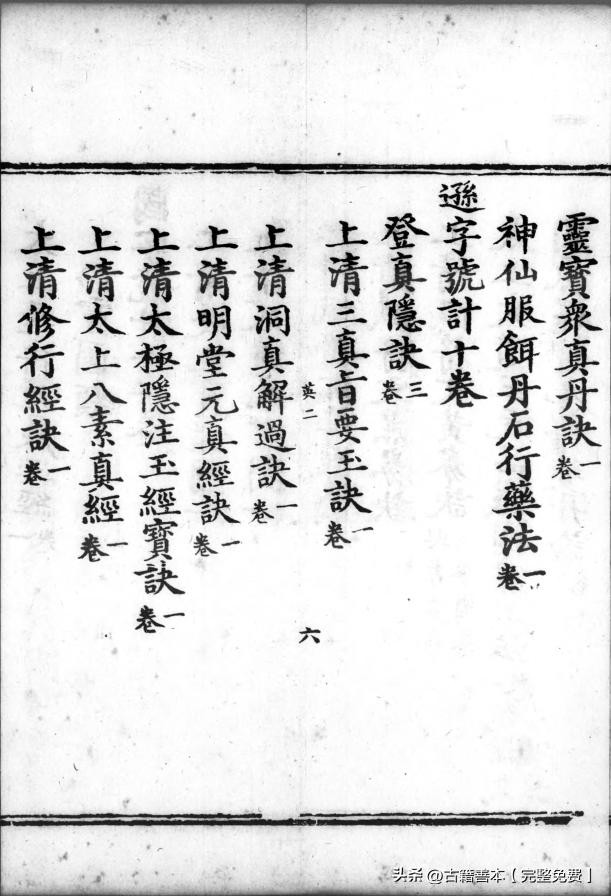 靈寶衆真丹訣一卷
神仙服餌丹石行藥法一卷
遜字號計十卷
登真隱訣三卷
上清三真旨要玉訣一卷
英二
六
上清洞真解過訣一卷
上清明堂元真經訣一卷
上清太極隱注玉經寶訣一卷
上清太上八素真經一卷
上清修行經訣一卷
头条 @古籍善本【完整免费】